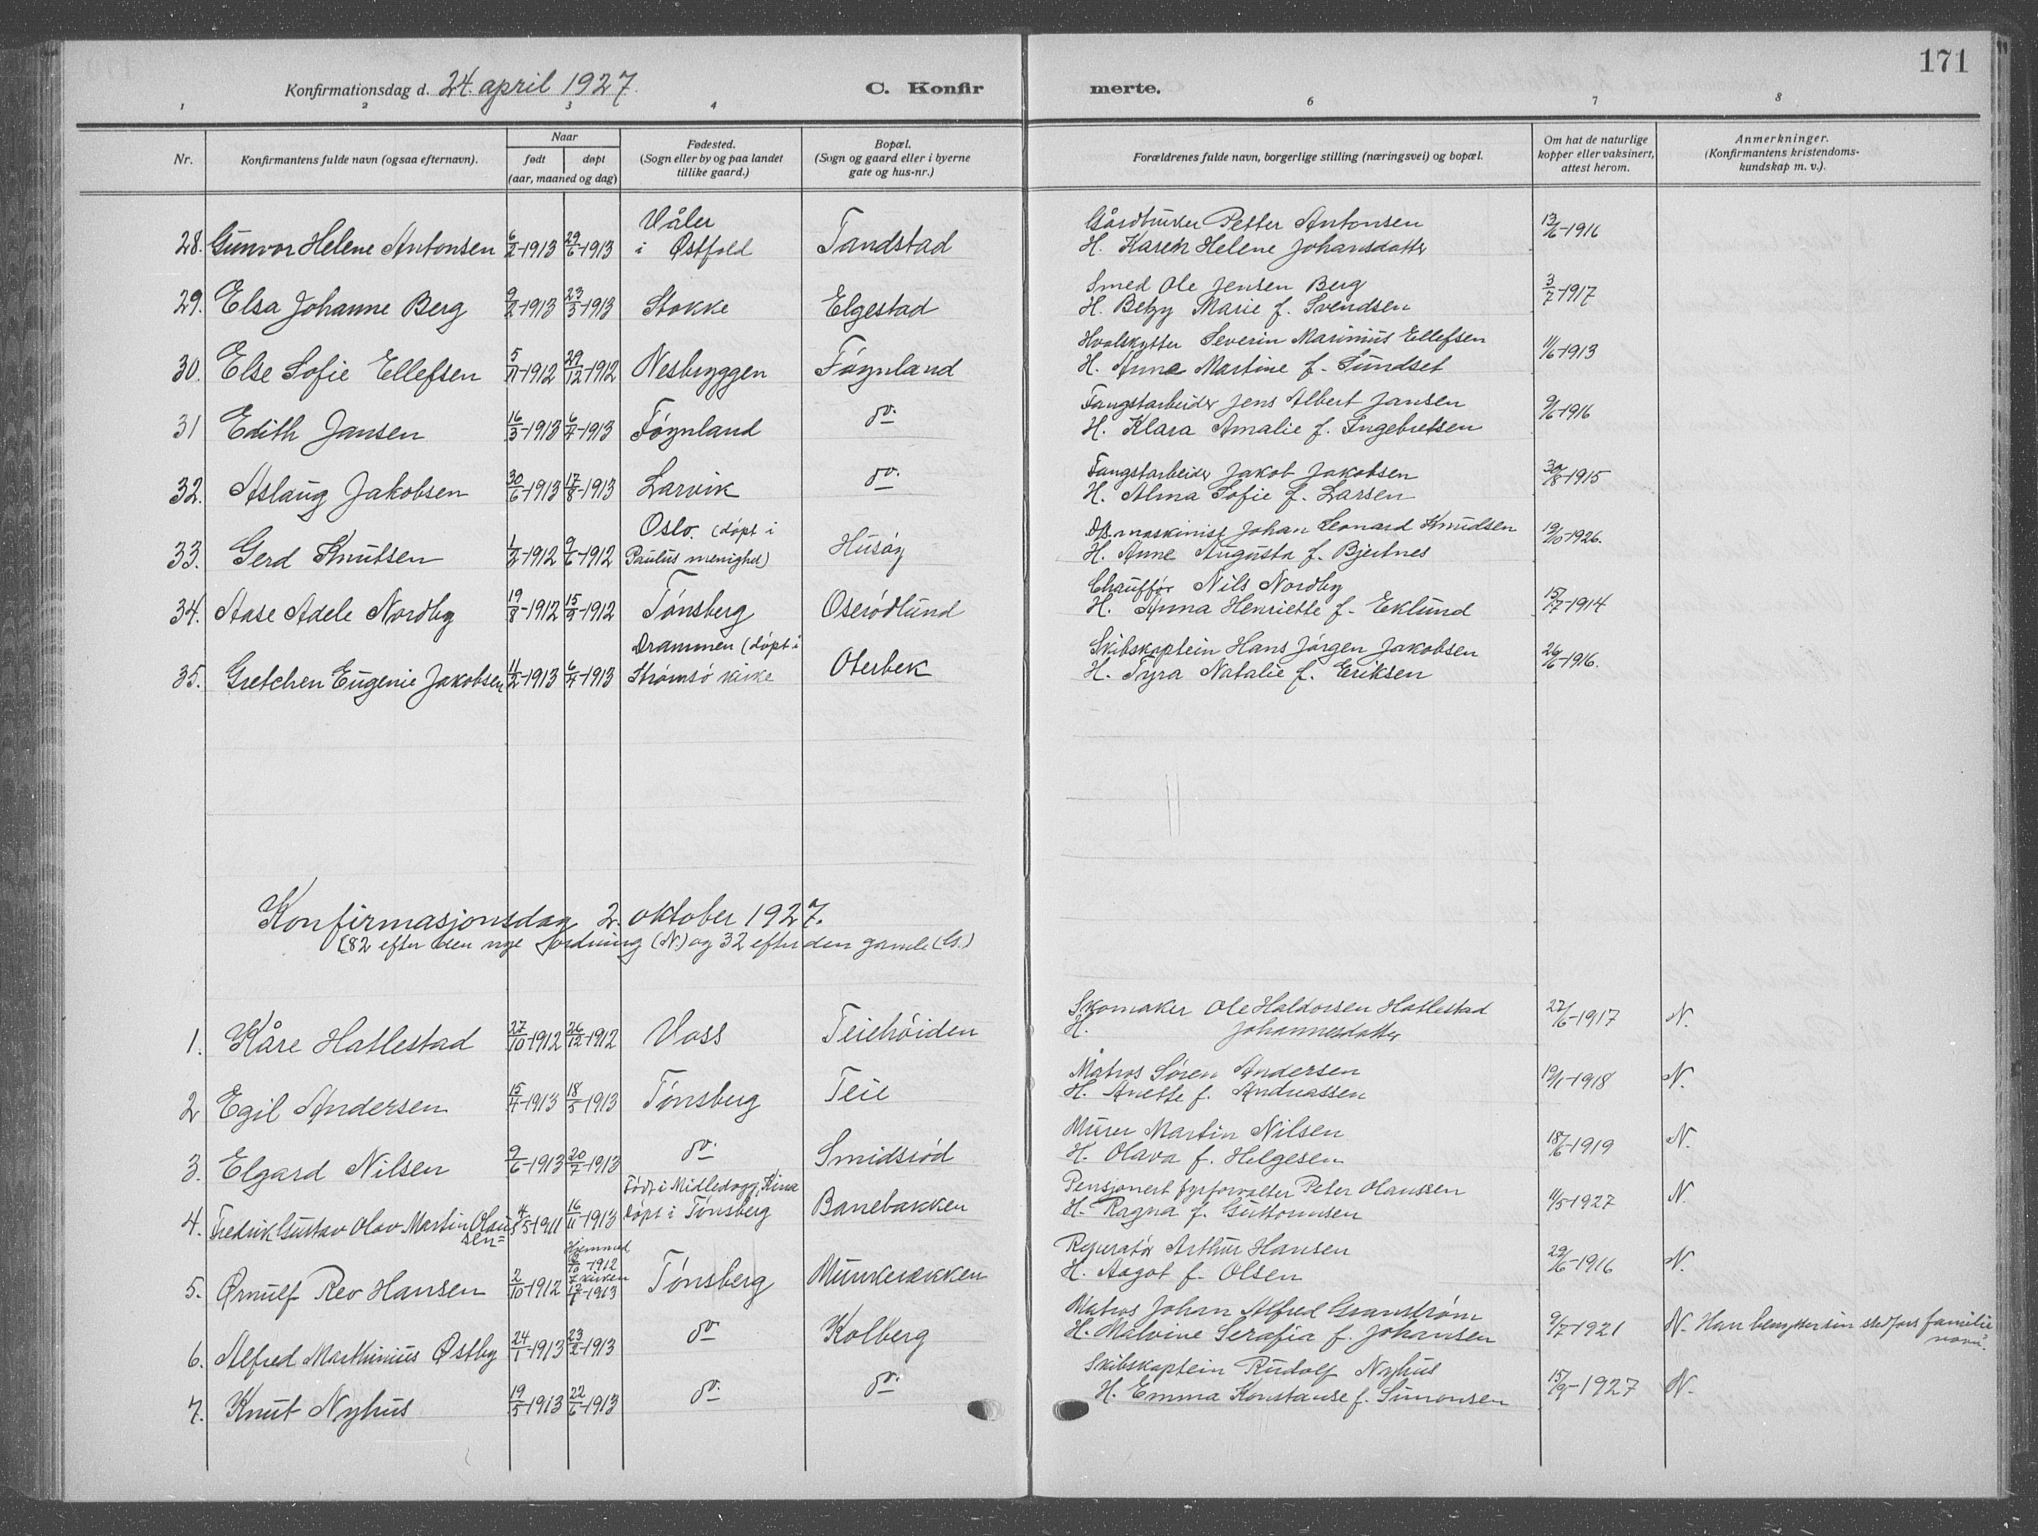 171
Konfirmationsdag d. 24. april 1927.
C. Konfirmerte.
1 2 3 4 5 6 7 8
Nr. | Konfirmantens fulde navn (ogsaa efternavn). | Naar født døpt (aar, maaned og dag) | Fødested. (Sogn eller by og paa landet tillike gaard.) | Bopæl. (Sogn og gaard eller i byerne gate og hus-nr.) | Forældrenes fulde navn, borgerlige stilling (næringsvei) og bopæl. | Om hat de naturlige kopper eller vaksinert, attest herom. | Anmerkninger. (Konfirmantens kristendoms-kundskap m. v.).
28. Gunvor Helene Antonsen | 6/2-1913 | 29/6-1913 | Våler i Østfold | Tandstad | Gårdbruker Petter Antonsen H. Karen Helene Johansdatter | 13/6-1916
29. Elsa Johanne Berg | 9/2-1913 | 23/3-1913 | Stokke | Elgestad | Smed Ole Jensen Berg H. Betzy Marie f. Svendsen | 3/7-1917
30. Else Sofie Ellefsen | 5/11-1912 | 29/12-1912 | Nesbryggen | Føynland | Hvalskytter Severin Marinius Ellefsen H. Anna Martine f. Sundset | 11/6-1913
31 Edith Jansen | 16/3-1913 | 6/4-1913 | Føynland | do. | Fangstarbeider Jens Albert Jansen H. Klara Amalie f. Ingebretsen | 9/6-1916
32. Aslaug Jakobsen | 30/6-1913 | 17/8-1913 | Larvik | do. | Fangstarbeider Jakob Jakobsen H. Alma Sofie f. Larsen | 30/8-1915
33. Gerd Knutsen | 1/2-1912 | 9/6-1912 | Oslo. (døpt i Paulus menighed) | Husøy | maskinist Johan Leonard Knudsen H. Anne Augusta f. Bjertnes | 19/10-1926.
34. Aase Adele Nordby | 19/8-1912 | 15/9-1912 | Tønsberg | Oserødlund | Chauffør Nils Nordby H. Anna Henriette f. Eklund | 15/7-1914
35. Gretchen Eugenie Jakobsen | 11/2-1913 | 6/4-1913 | Drammen (døpt i Strømsø kirke | Oterbek | Skibskaptein Hans Jørgen Jakobsen H. Tyra Natalie f. Eriksen | 26/6-1916.
Konfirmasjonsdag 2. oktober 1927.
(82 efter den nye fordning (N.) og 32 efter den gamle (G.)
1. Kåre Hatlestad | 27/10-1912 | 26/12-1912 | Voss | Teiehøiden | Skomaker Ole Haldorsen Hatlestad H. Johannesdatter | 22/6-1917 | N.
2 Egil Andersen | 15/4-1913 | 18/5-1913 | Tønsberg | Teie | Matros Søren Andersen H. Anette f. Andreassen | 19/1-1918 | N.
3. Elgard Nilsen | 9/6-1913 | 20/7-1913 | do. | Smidsrød | Murer Martin Nilsen H. Olava f. Helgesen | 18/6-1919 | N.
4. Fredrik Gustav Olav Martin Olausen | 4/5-1911 | 16/11-1913 | Født i Midledogg, Kina døpt i Tønsberg | Banebakken | Pensjonert fyrforvalter Peter Olaussen H. Ragna f. Guttormsen | 11/5-1927 | N.
5. Ørnulf Rev Hansen | 2/10-1912 | Hjemmed 9/10-1912 i kirken 12/1-1913 | Tønsberg | Munkerekken | Reperatør Arthur Hansen H. Aagot f. Olsen | 29/6-1916 | N.
6. Alfred Marthinius Østby | 24/1-1913 | 23/2-1913 | do | Kolberg | Matros Johan Alfred Granstrøm H. Malvine Serafia f. Johansen | 9/7-1921 | N. Han benytter sin stedfars familienavn.
7. Knut Nyhus | 19/5-1913 | 22/6-1913 | do. | do. | Skibskaptein Rudolf Nyhus H. Emma Konstanse f. Simonsen | 15/9-1927 | N.